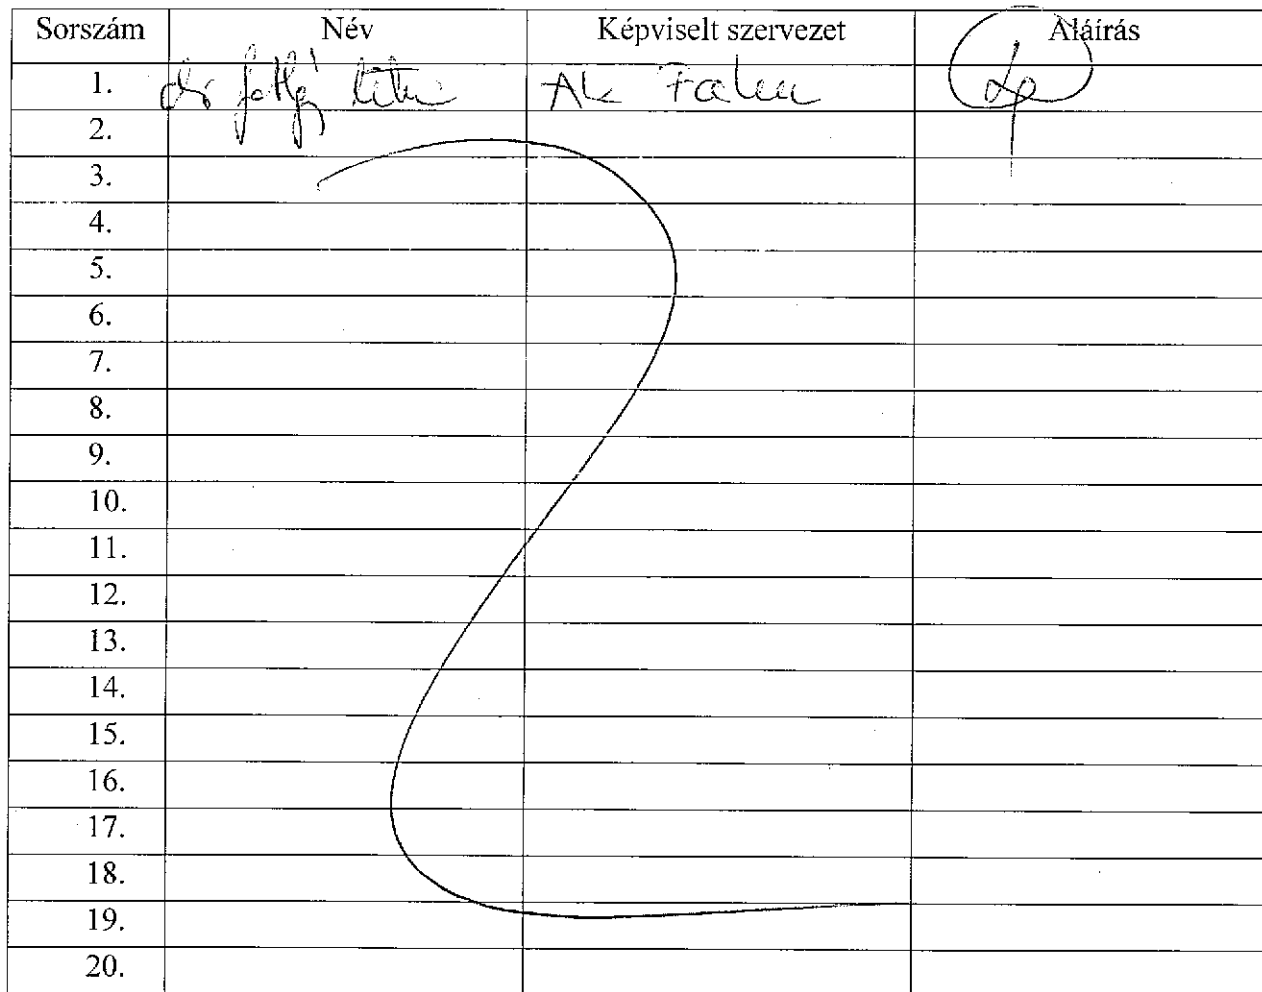 Sorszám Név Képviselt szervezet Aláírás
1. dr
2.
3.
4.
5.
6.
7.
8.
9.
10.
11.
12.
13.
14.
15.
16.
17.
18.
19.
20.